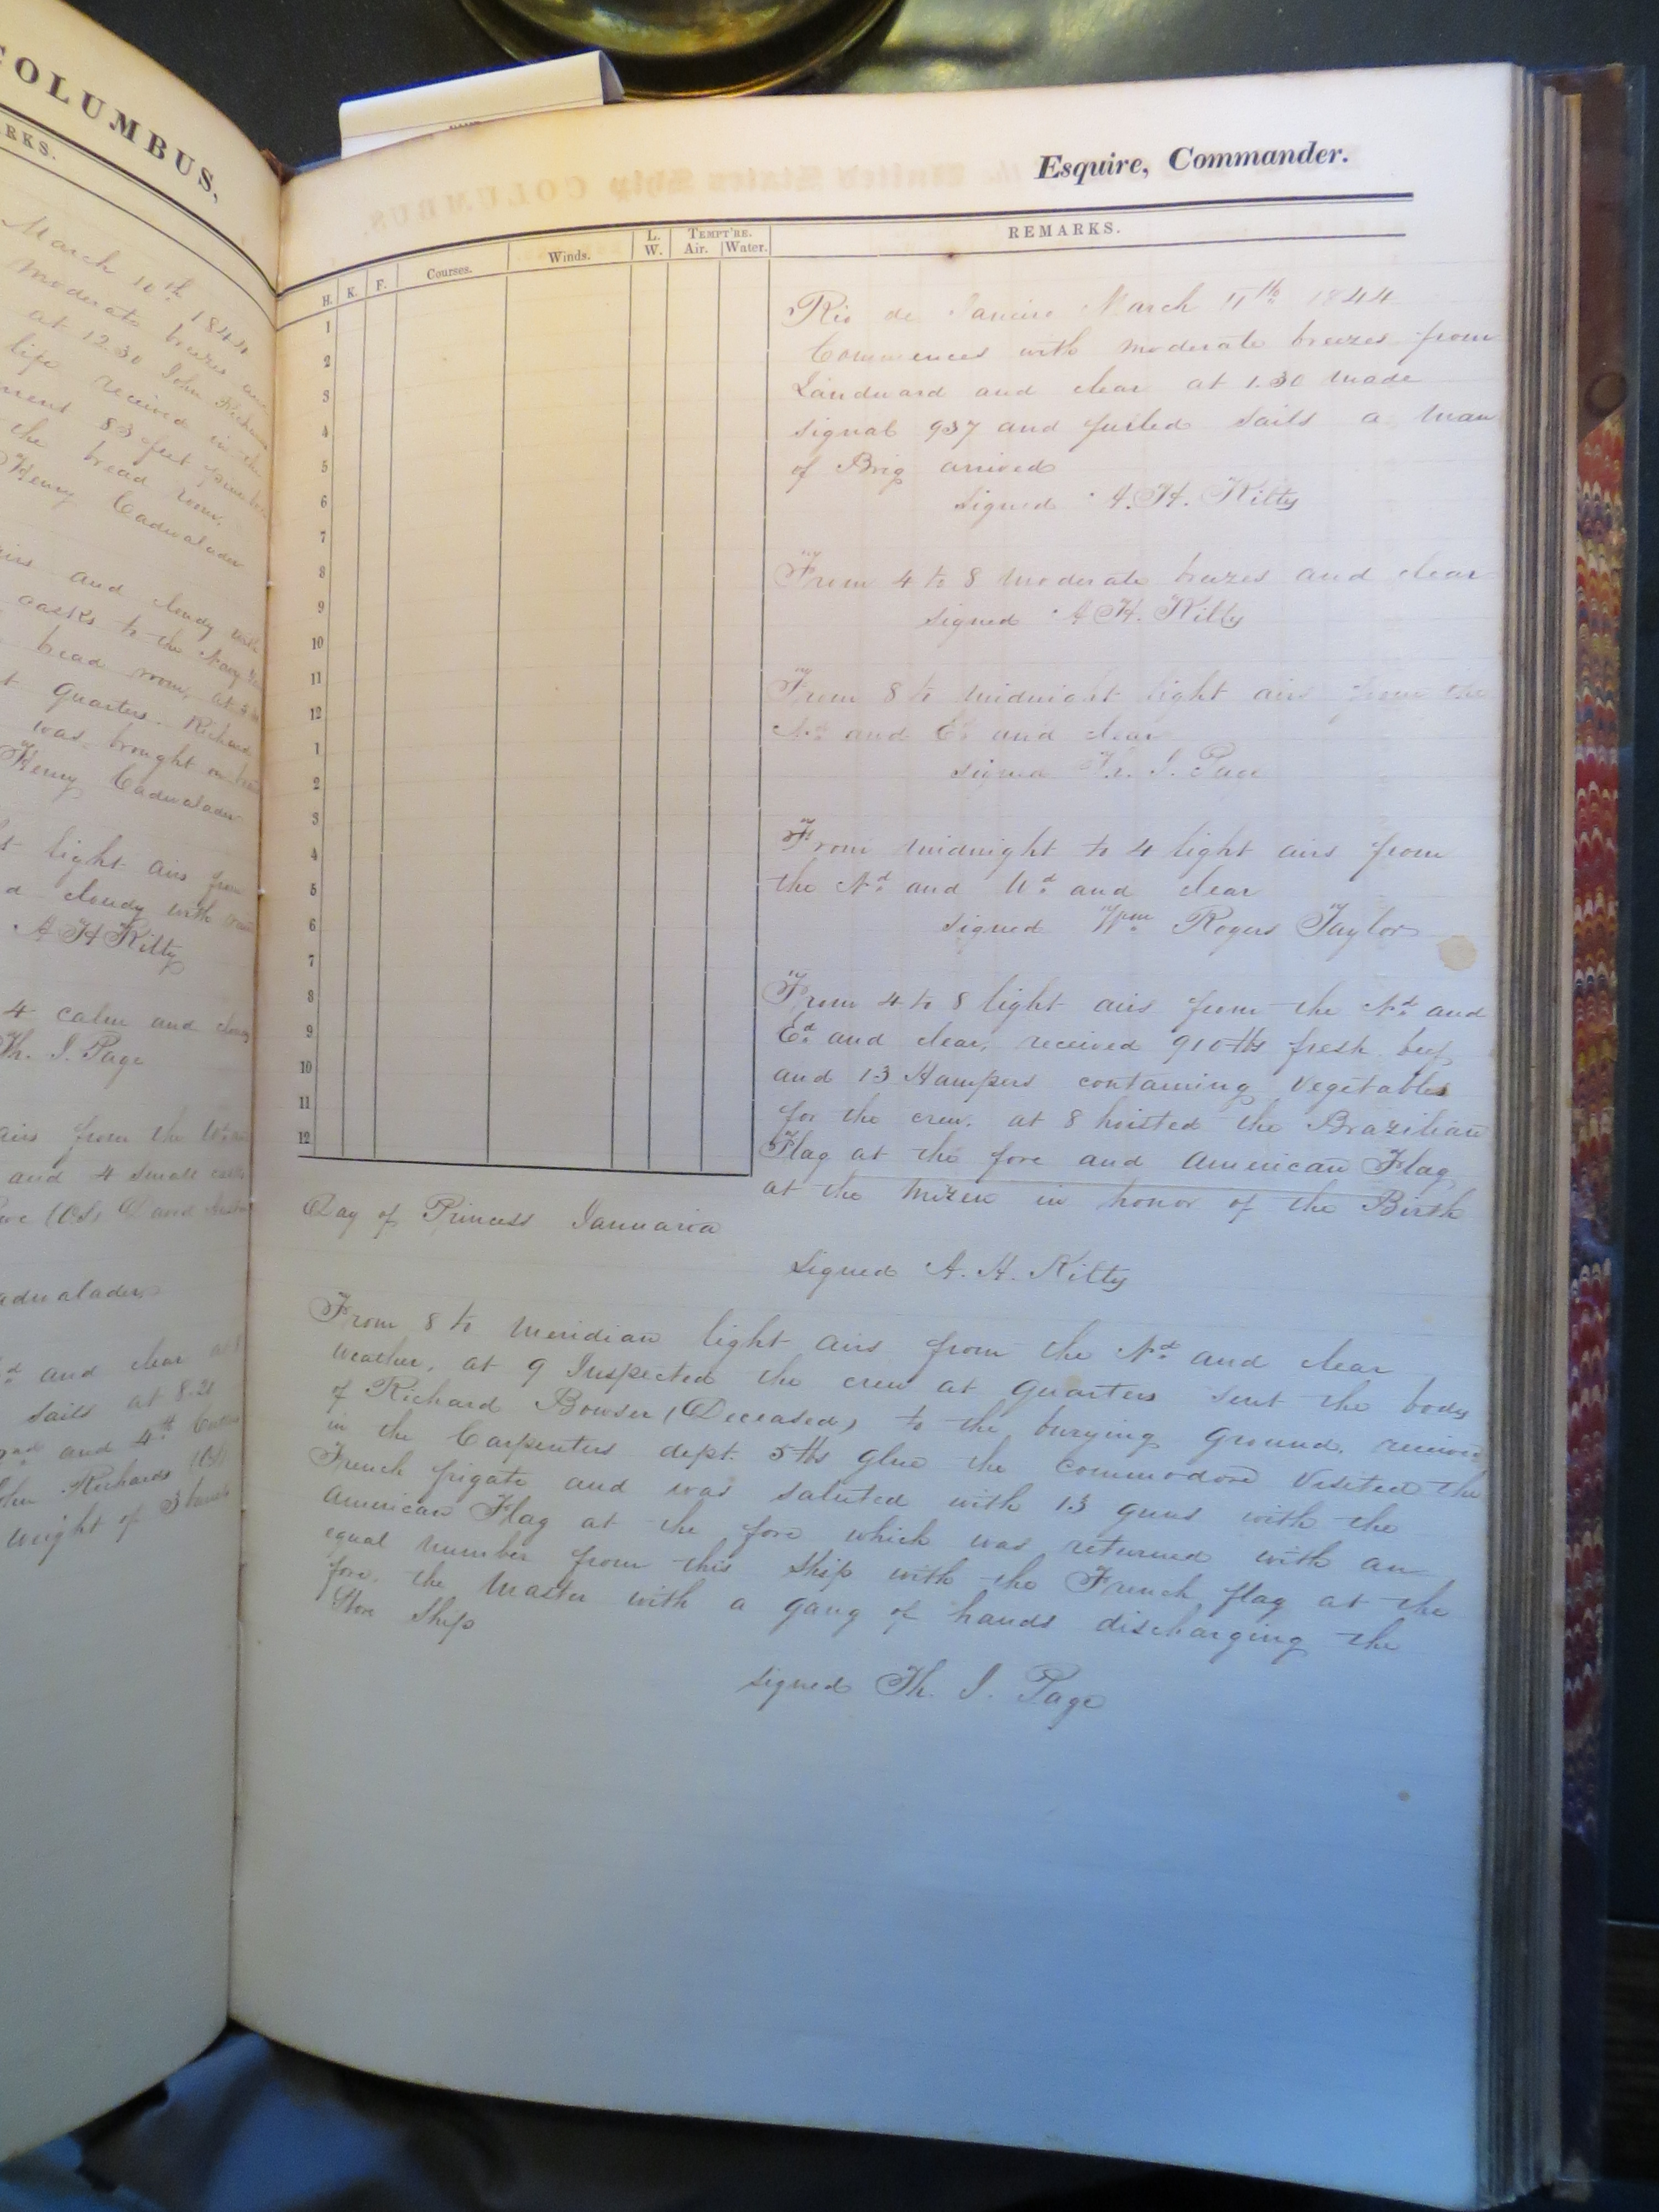 COLUMBUS,
RKS.
March 10th 1844
moderate breezes and
at 12.30 John Richards
life received in the
ment 83 feet pine
the bread room.
Henry Cadwalader
airs and cloudy with
casks to the Navy
bread room, at
t quarters. Richard
was brought on
Henry Cadwalader
light airs from
d cloudy with
A H Kilty
4 calm and cloudy
Th. I. Page
airs from the Wd and
and 4 small casks
David
adwalader
d and clear at 8
sails at 8.20
and 4th Cutters
John Richards (OS)
weight of 3
Esquire, Commander.
H. K. F. Courses. Winds. L. W. TEMPT'RE. Air. Water. REMARKS.
1
2
3
4
5
6
7
8
9
10
11
12
1
2
3
4
5
6
7
8
9
10
11
12
Rio de Janeiro March 11th 1844
Commences with moderate breezes from
Landward and clear at 1.30 made
signal 937 and furled sails a man
of Brig arrived
signed A. H. Kilty
From 4 to 8 moderate breezes and clear
signed A H. Kilty
From 8 to midnight light airs from the
Nd and Ed and clear
signed Th. I. Page
From midnight to 4 light airs from
the Nd and Wd and clear
signed Wm Rogers Taylor
From 4 to 8 light airs from the Nd and
Ed and clear, received 910 lbs fresh beef
and 13 Hampers containing Vegetables
for the crew. at 8 hoisted the Brazilian
Flag at the fore and American Flag
at the mizen in honor of the Birth
Day of Princess Januaria
Signed A. H. Kilty
From 8 to meridian light airs from the Nd and clear
weather, at 9 Inspected the crew at quarters sent the body
of Richard Bowser (Deceased) to the burying ground. received
in the Carpenters dept. 5 lbs glue the commodore visited the
French frigate and was saluted with 13 guns with the
American Flag at the fore which was returned with an
equal number from this ship with the French flag at the
fore. the master with a gang of hands discharging the
Store Ship
signed Th. I. Page